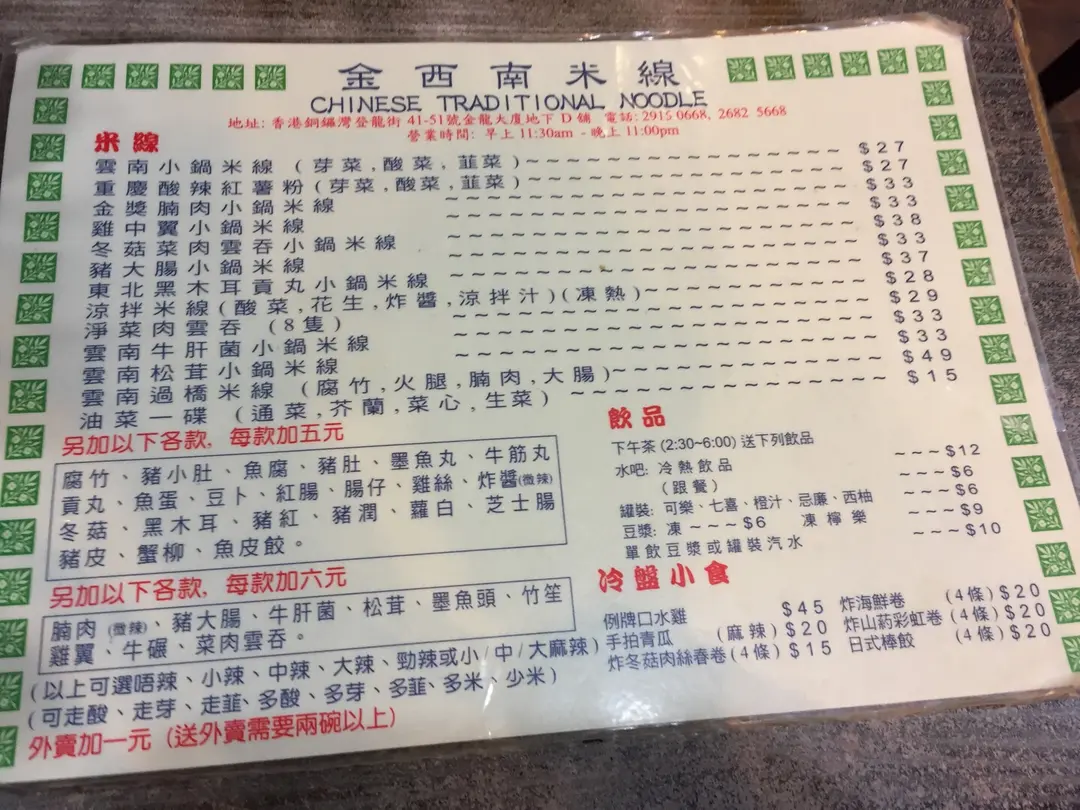 金西南米線
CHINESE TRADITIONAL NOODLE
地址: 香港銅鑼灣登龍街 41-51號金龍大廈地下 D 舖 電話: 2915 0668, 2682 5668
營業時間: 早上 11:30am - 晚上 11:00pm
米線
雲南小鍋米線 (芽菜,酸菜,韮菜)~~~~~~~~~~~~~~~~ $27
重慶酸辣紅薯粉 (芽菜,酸菜,韮菜)~~~~~~~~~~~~~~~~ $27
金獎腩肉小鍋米線 ~~~~~~~~~~~~~~~~~~~~ $33
雞中翼小鍋米線 ~~~~~~~~~~~~~~~~~~~~ $33
冬菇菜肉雲吞小鍋米線 ~~~~~~~~~~~~~~~~~~~~ $38
豬大腸小鍋米線 ~~~~~~~~~~~~~~~~~~~~ $33
東北黑木耳貢丸小鍋米線 ~~~~~~~~~~~~~~~~~~~~ $37
涼拌米線 (酸菜,花生,炸醬,涼拌汁)(凍熱)~~~~~~~~~~ $28
淨菜肉雲吞 (8隻) ~~~~~~~~~~~~~~~~~~~~ $29
雲南牛肝菌小鍋米線 ~~~~~~~~~~~~~~~~~~~~ $33
雲南松茸小鍋米線 ~~~~~~~~~~~~~~~~~~~~ $33
雲南過橋米線 (腐竹,火腿,腩肉,大腸)~~~~~~~~~~~~ $49
油菜一碟 (通菜,芥蘭,菜心,生菜) ~~~~~~~~~~~~~~ $15
另加以下各款, 每款加五元
腐竹、豬小肚、魚腐、豬肚、墨魚丸、牛筋丸
貢丸、魚蛋、豆卜、紅腸、腸仔、雞絲、炸醬(微辣)
冬菇、黑木耳、豬紅、豬潤、蘿白、芝士腸
豬皮、蟹柳、魚皮餃。
另加以下各款, 每款加六元
腩肉 (微辣)、豬大腸、牛肝菌、松茸、墨魚頭、竹笙
雞翼、牛碾、菜肉雲吞。
(以上可選唔辣、小辣、中辣、大辣、勁辣或小/中/大麻辣)
(可走酸、走芽、走韮、多酸、多芽、多韮、多米、少米)
外賣加一元 (送外賣需要兩碗以上)
飲品
下午茶 (2:30~6:00) 送下列飲品
水吧: 冷熱飲品 ~~~$12
(跟餐) ~~~$6
罐裝: 可樂、七喜、橙汁、忌廉、西柚 ~~~$6
豆漿: 凍~~~$6 凍檸樂 ~~~$9
單飲豆漿或罐裝汽水 ~~~$10
冷盤小食
例牌口水雞 $45
手拍青瓜 (麻辣) $20
炸冬菇肉絲春卷 (4條) $15
炸海鮮卷 (4條) $20
炸山葯彩虹卷 (4條) $20
日式棒餃 (4條) $20